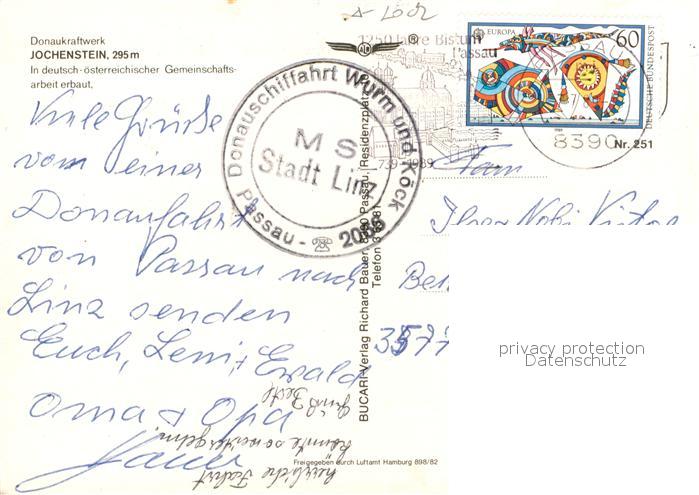 Donaukraftwerk
JOCHENSTEIN, 295 m
In deutsch-österreichischer Gemeinschafts-
arbeit erbaut,
Viele Grüße
von einer
Donaufahrt
von Passau nach
Linz senden
Euch, Leni + Ewald
Oma + Opa
herrliche Fahrt
könnte so weitergehn.
Gruß
Freigegeben durch Luftamt Hamburg 898/82
BUCARI-Verlag Richard Bauer, Passau, Residenzplatz
Telefon
®
1250 Jahre Bistum
Passau
1739 - 1989
Donauschiffahrt Wurm und Köck
MS
Stadt Linz
Passau - ☎ 2066
EUROPA
60
DEUTSCHE BUNDESPOST
8390
Nr. 251
Fam
privacy protection
Datenschutz